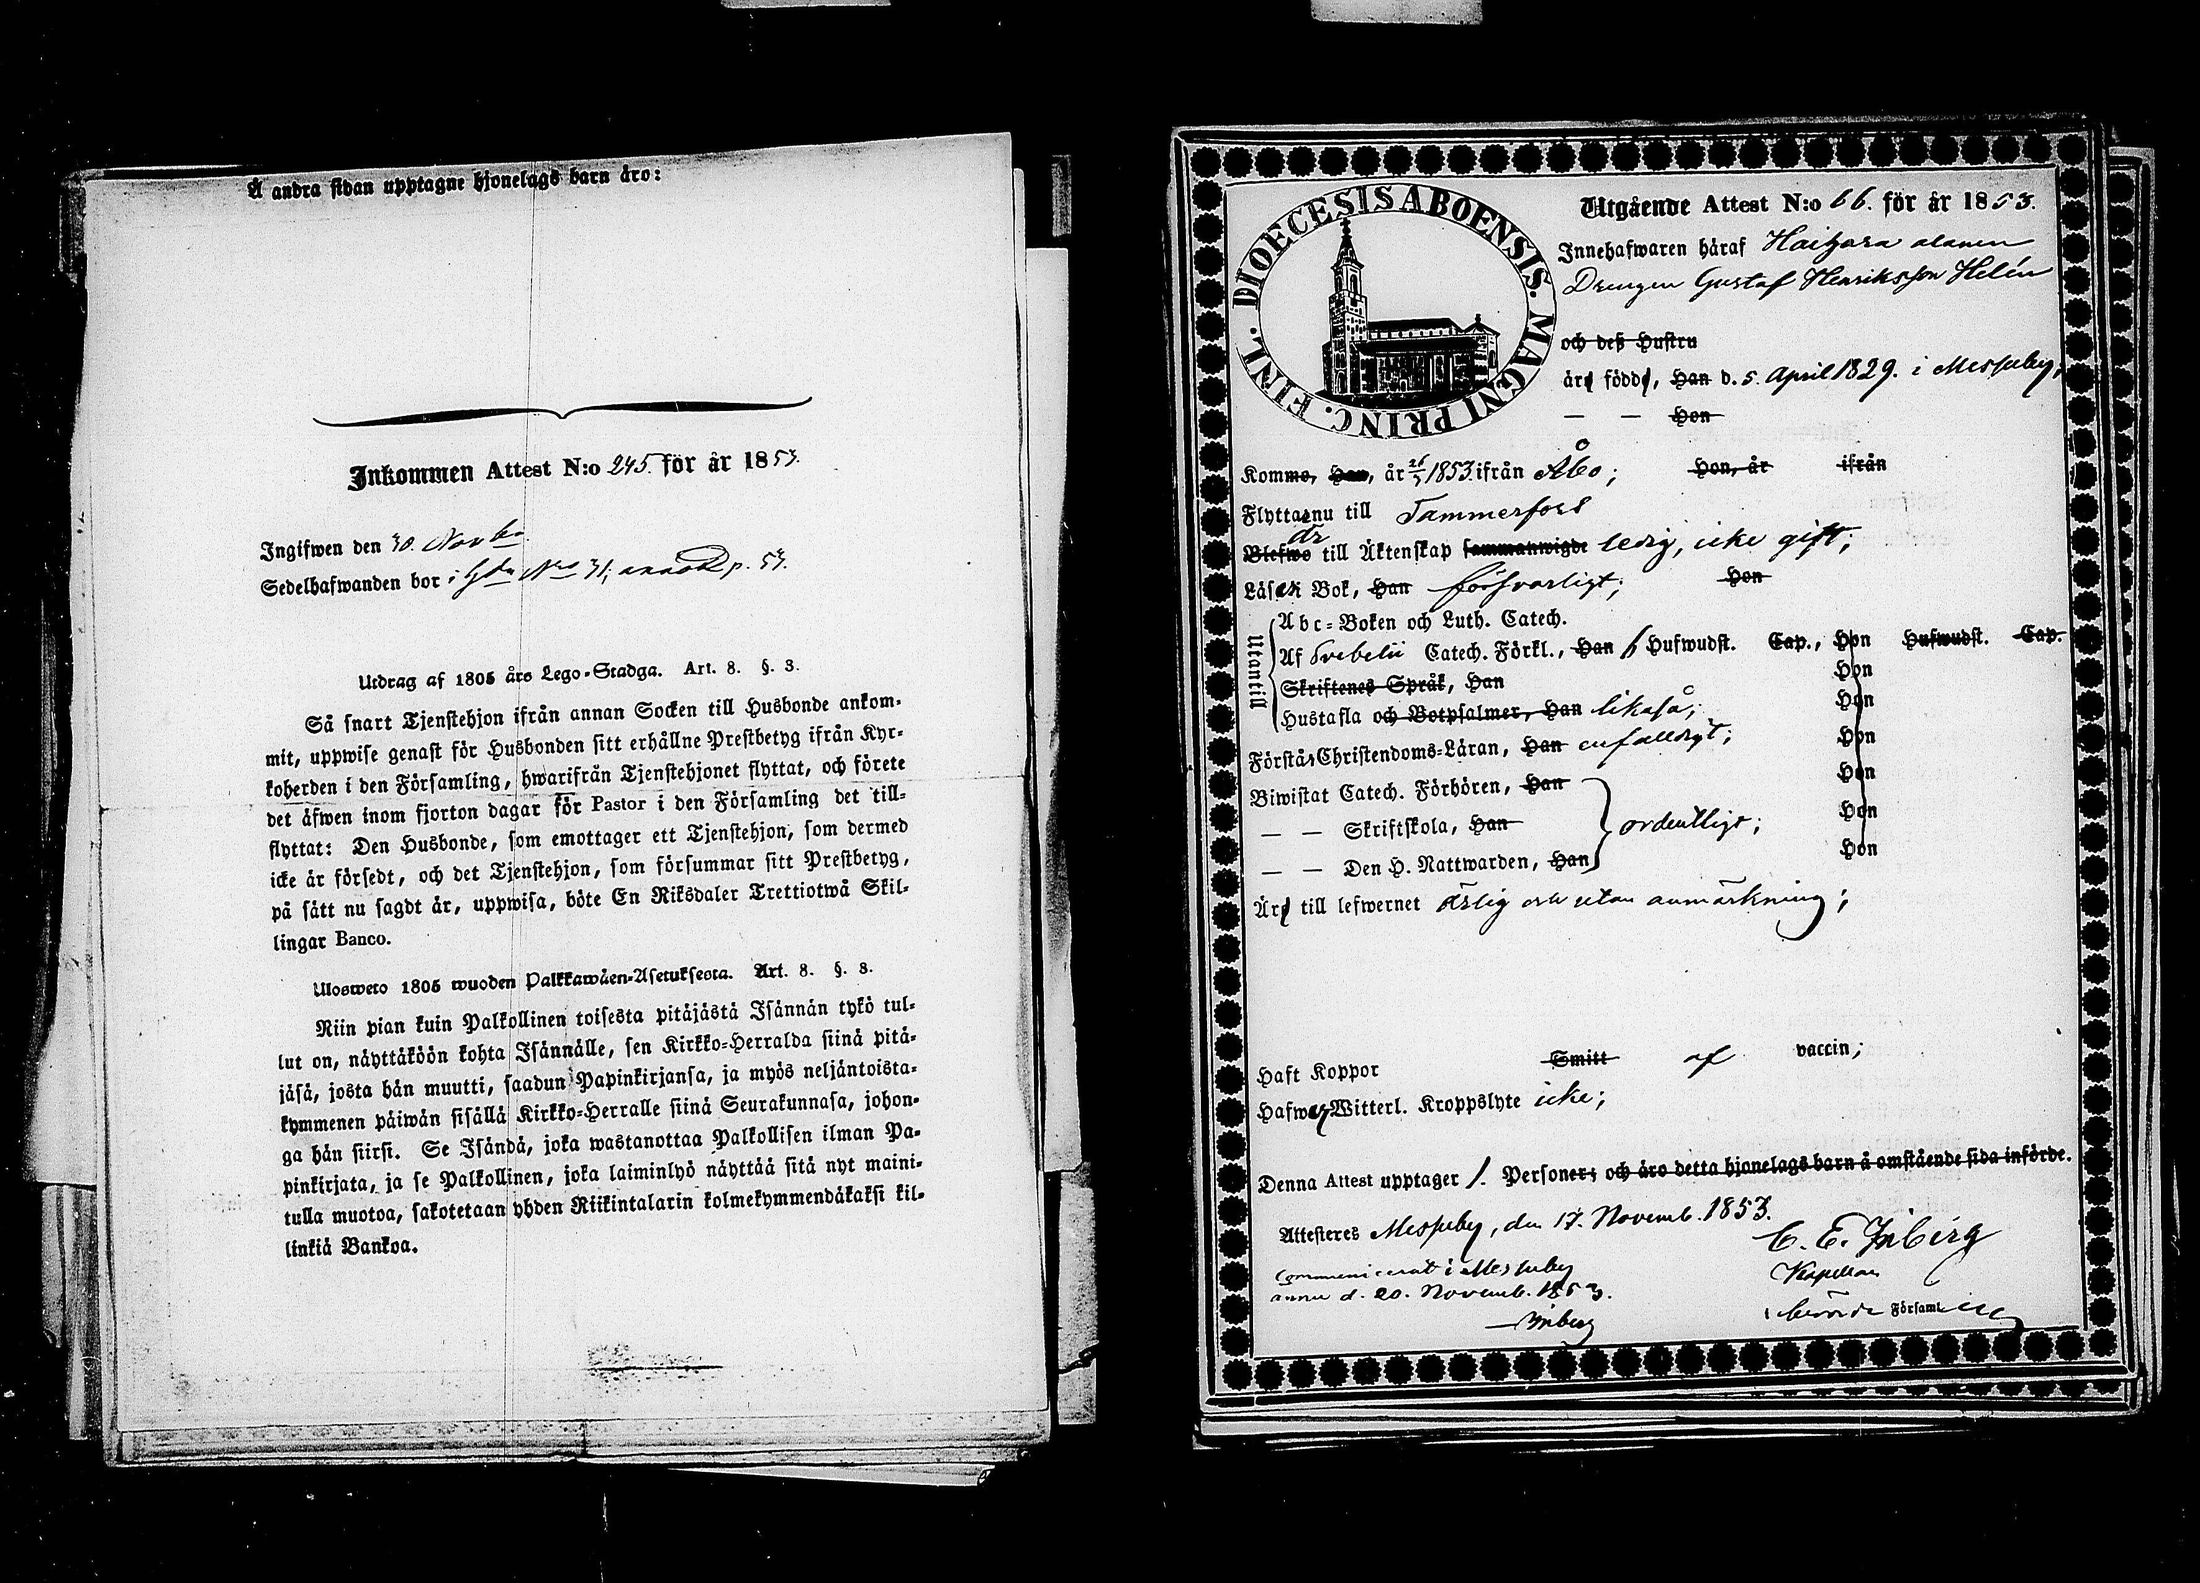 Å andra sidan upptagne hjonelags barn äro:
Inkommen Attest N:o 245. för år 1853.
Ingifwen den 30. Novbr
Sedelhafwanden bor i Gdn Nro 31; p. 53.
Utdrag af 1805 års Lego-Stadga. Art. 8. §. 3.
Så snart Tjenstehjon ifrån annan Socken till Husbonde ankom-
mit, uppwise genast för Husbonden sitt erhållne Prestbetyg ifrån Kyr-
koherden i den Församling, hwarifrån Tjenstehjonet flyttat, och förete
det äfwen inom fjorton dagar för Pastor i den Församling det till-
flyttat: Den Husbonde, som emottager ett Tjenstehjon, som dermed
icke är försedt, och det Tjenstehjon, som försummar sitt Prestbetyg,
på sätt nu sagdt är, uppwisa, böte En Riksdaler Trettiotwå Skil-
lingar Banco.
Ulosweto 1805 wuoden Palkkawäen-Asetuksesta. Art. 8. §. 3.
Niin pian kuin Palkollinen toisesta pitäjästä Isännän tykö tul-
lut on, näyttäköön kohta Isännälle, sen Kirkko-Herralda siinä pitä-
jäsä, josta hän muutti, saadun Papinkirjansa, ja myös neljäntoista-
kymmenen päiwän sisällä Kirkko-Herralle siinä Seurakunnasa, johon-
ga hän siirsi. Se Isändä, joka wastanottaa Palkollisen ilman Pa-
pinkirjata, ja se Palkollinen, joka laiminlyö näyttää sitä nyt maini-
tulla muotoa, sakotetaan yhden Riikintalarin kolmekymmendäkaksi kil-
linkiä Bankoa.
DIOECESIS ABOENSIS. MAGNI PRINC. FINL.
Utgående Attest N:o 66. för år 1853.
Innehafwaren häraf
Drengen Gustaf Henriksson Helén
och dess Hustru
äre född, Han d. 5. April 1829. i Messuby;
— — Hon
Komme, Han, år 26/5 1853. ifrån Åbo; Hon, år ifrån
Flyttar nu till Tammerfors
är
Blefwo till Äktenskap sammanwigde ledig, icke gift;
Läser i Bok, Han försvarligt; Hon
Utantill
Abc-Boken och Luth. Catech.
Af Svebelii Catech. Förkl., Han 6 Hufwudst. Cap., Hon Hufwudst. Cap.
Skriftenes Språk, Han Hon
Hustafla och Botpsalmer, Han likaså; Hon
Förstår Christendoms-Läran, Han enfaldigt; Hon
Biwistat Catech. Förhören, Han Hon
— — Skriftskola, Han ordentligt; Hon
— — Den H. Nattwarden, Han Hon
Äre till lefwernet ärlig och utan anmärkning;
Haft Koppor Smitt af vaccin;
Hafwer Witterl. Kroppslyte icke;
Denna Attest upptager 1. Personer; och äro detta hjonelags barn å omstående sida införde.
Attesteres Messuby, den 17. Novemb. 1853.
C. E. Inberg
Kapellan
Communicerat i Messuby
d. 20. Novemb. 1853.
Inberg
i berörde Församling